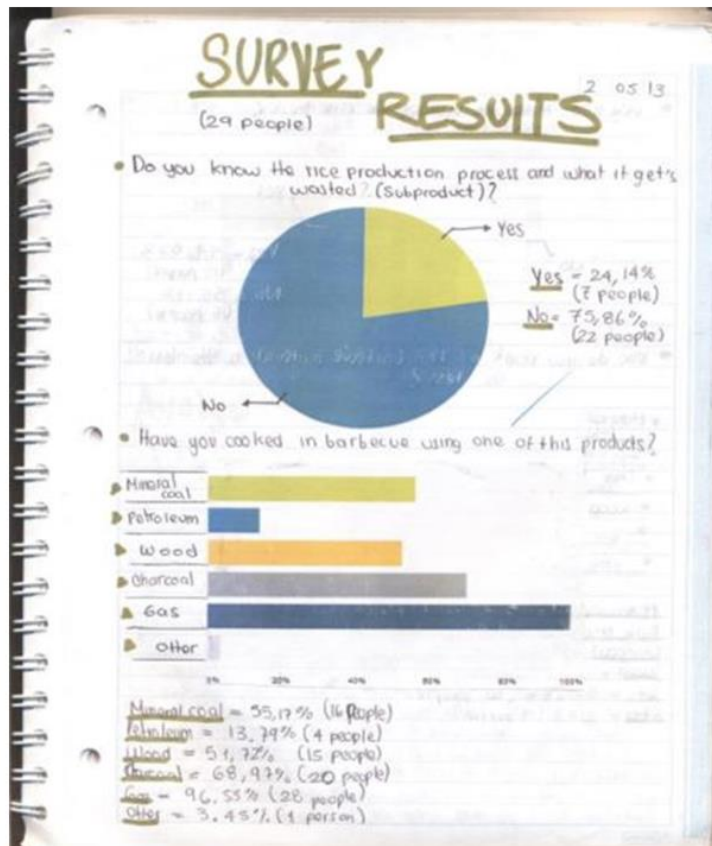 SURVEY
2 05 13
RESULTS
(29 people)
Do you know the rice production process and what it get's
wasted? (Subproduct)?
Yes
Yes = 24,14%
(7 people)
No = 75,86%
(22 people)
No
Have you cooked in barbecue using one of this products?
Mineral
coal
Petroleum
Wood
Charcoal
Gas
Other
0% 20% 40% 60% 80% 100%
Mineral coal = 55,17% (16 People)
Petroleum = 13,79% (4 people)
Wood = 51,72% (15 people)
Charcoal = 68,97% (20 people)
Gas = 96,55% (28 people)
Other = 3.45% (1 person)